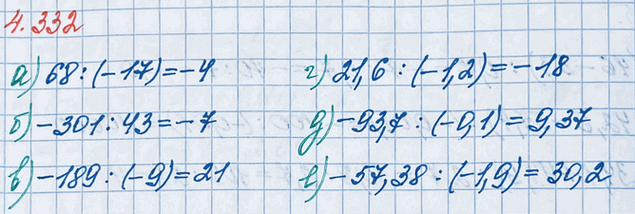 4.332
а) 68 : (-17) = -4
г) 21,6 : (-1,2) = -18
б) -301 : 43 = -7
д) -93,7 : (-0,1) = 9,37
в) -189 : (-9) = 21
е) -57,38 : (-1,9) = 30,2